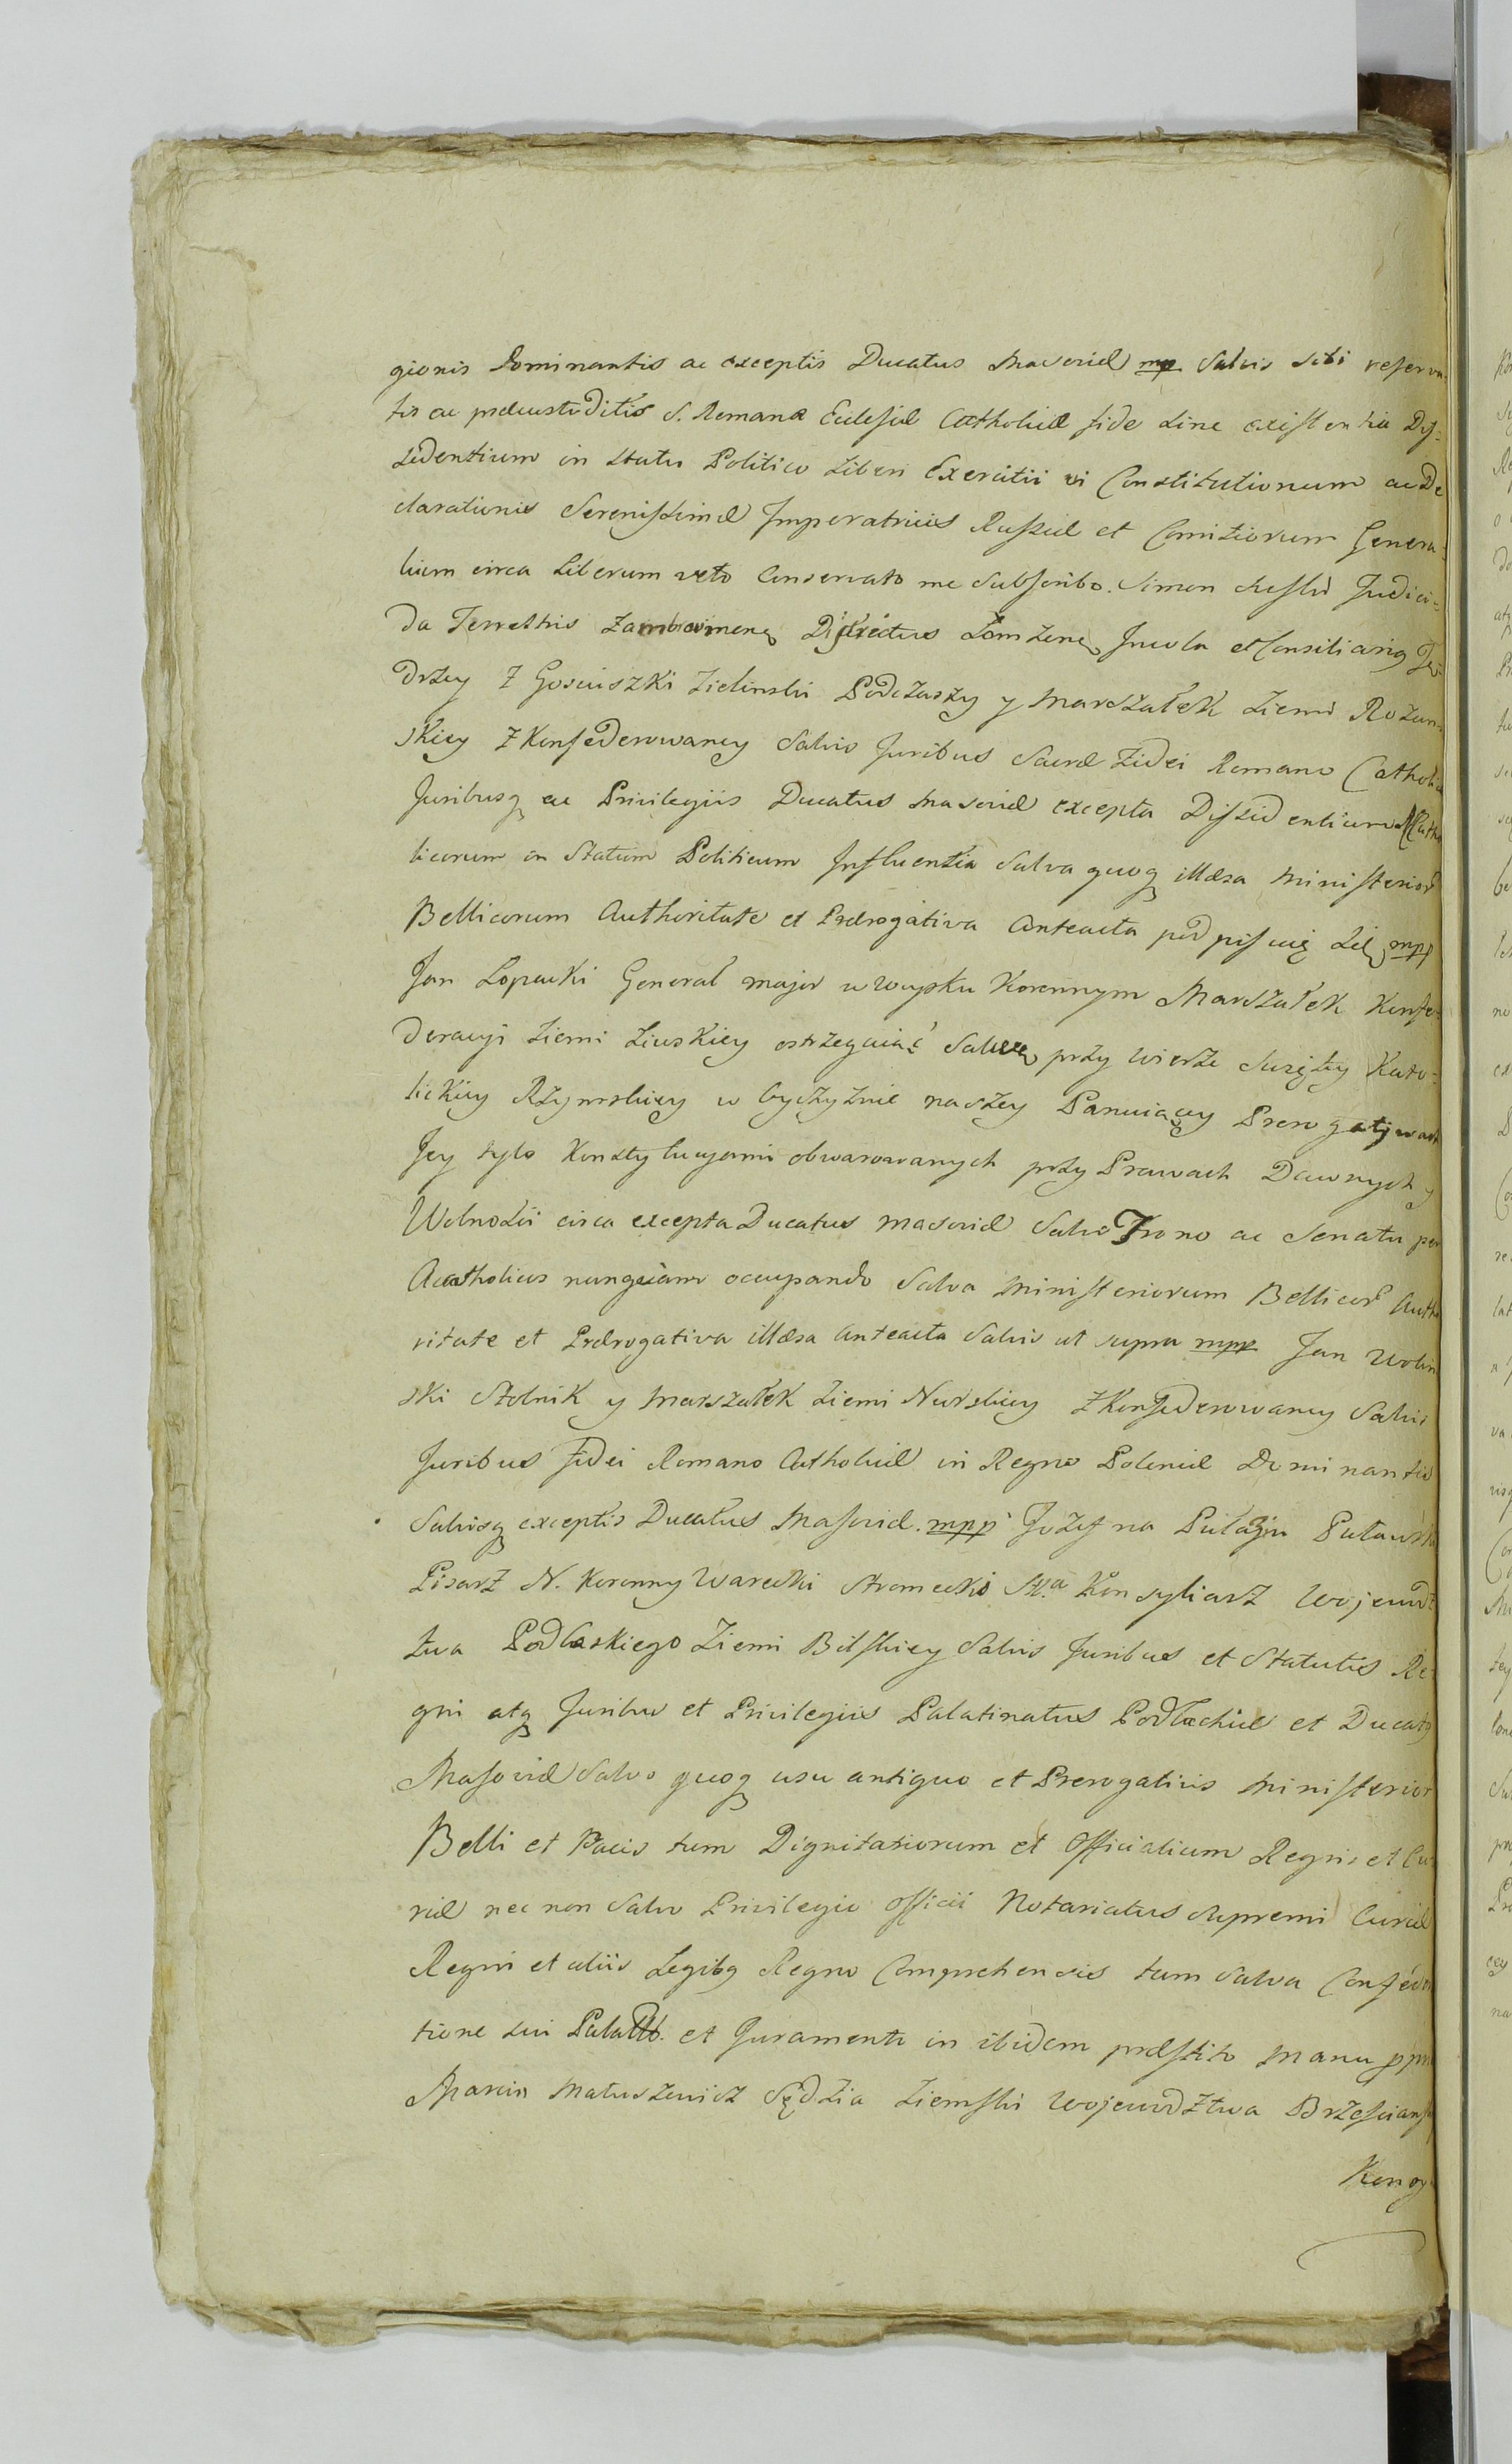 gionis Dominantis ac exceptis Ducatus Masoviæ mp Salvis sibi reserva-
tis ac præcustoditis S. Romanæ Ecclesiæ Catholicæ fide sine existentia Dis-
sidentium in statu Politico liberi Exercitii vi Constitutionum ac De
clarationis Serenissimæ Imperatricis Russiæ et Comitiorum Genera-
lium circa Liberum veto conservato me Subscribo. Simon Judici-
da Terrestris Districtus Łomżens Incola et Consiliarius Ję-
drzey Z Gosciszki Zielinski Podczaszy y Marszałek Ziemi Rożan-
skiey Zkonfederowaney Salvis Juribus Sacræ Fidei Romano Catholicæ
Juribusq ac Privilegiis Ducatus Masoviæ excepta Dissidentium Acatho
licorum in Statum Politicum Influentia Salva quoq illæsa Ministerior
Bellicorum Authoritate et Prærogativa Anteacta podpisuię się mpp
Jan Lopacki General major w woysku Koronnym Marszałek Konfe-
deracyi Ziemi Liwskiey ostrzegaiąc przy wierze Swiętey Kato-
lickiey Rzymskiey w Oyczyznie naszey Panuiącey Prerogatywach
Jey tylo Konstytucyami obwarowanych przy Prawach Dawnych y
Wolności circa excepta Ducatus Masoviæ Salvo Trono ac Senatu per
Acatholicos nunquam occupando Salva Ministeriorum Bellicor Autho
ritate et Prærogativa illæsa Anteacta Salvis ut supra mpp Jan Wolin
ski Stolnik y Marszałek Ziemi Nurskiey Zkonfederowaney Salvis
Juribus Fidei Romano Catholicæ in Regno Poloniæ Dominantis
Salvisq exceptis Ducatus Masoviæ. mpp Jozef na Pułaziu Puławski
Pisarz N. Koronny Warecki Konsyliarz Wojewodz
twa Podlaskiego Ziemi Bilskiey Salvis Juribus et Statutis Re
gni atq Juribus et Privilegiis Palatinatus Podlachiæ et Ducatq
Masoviæ Salvo quoq usu antiquo et Prerogativis Ministerior
Belli et Pacis tum Dignitariorum et Officialium Regni et Cu
riæ nec non Salvo Privilegio Officii Notariatus Supremi Curiæ
Regni et aliis Legibq Regno Comprehensis tum Salva Confedera
tione sui et Juramento in ibidem præstito Manu ppr
Marcin Matuszewicz Sędzia Ziemski Wojewodztwa Brzescians
Konsy